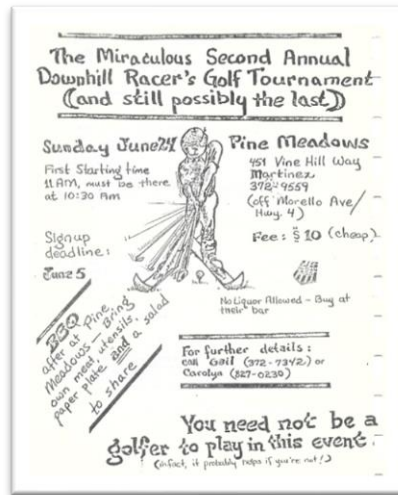 The Miraculous Second Annual
Downhill Racer's Golf Tournament
((and still possibly the last))
Sunday June 24
First Starting time
11 AM, must be there
at 10:30 Am
Signup
deadline:
June 5
Pine Meadows
451 Vine Hill Way
Martinez
372-9559
(off Morello Ave/
Hwy. 4)
Fee: $10 (cheap)
No Liquor Allowed - Buy at
their bar
BBQ
after at Pine
Meadows - Bring
own meat, utensils,
paper plate and a salad
to share
For further details:
call Gail (372-7342) or
Carolyn (827-0230)
You need not be a
golfer to play in this event.
(infact, it probably helps if you're not!)